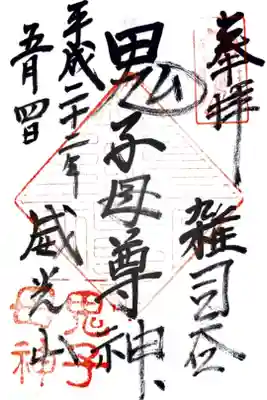 奉拝
雑司谷
鬼子母尊神
平成二十二年
五月四日
威光山
鬼子
母神